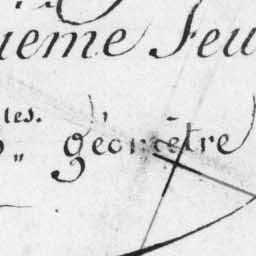 ième Feu
tes.
géomètre